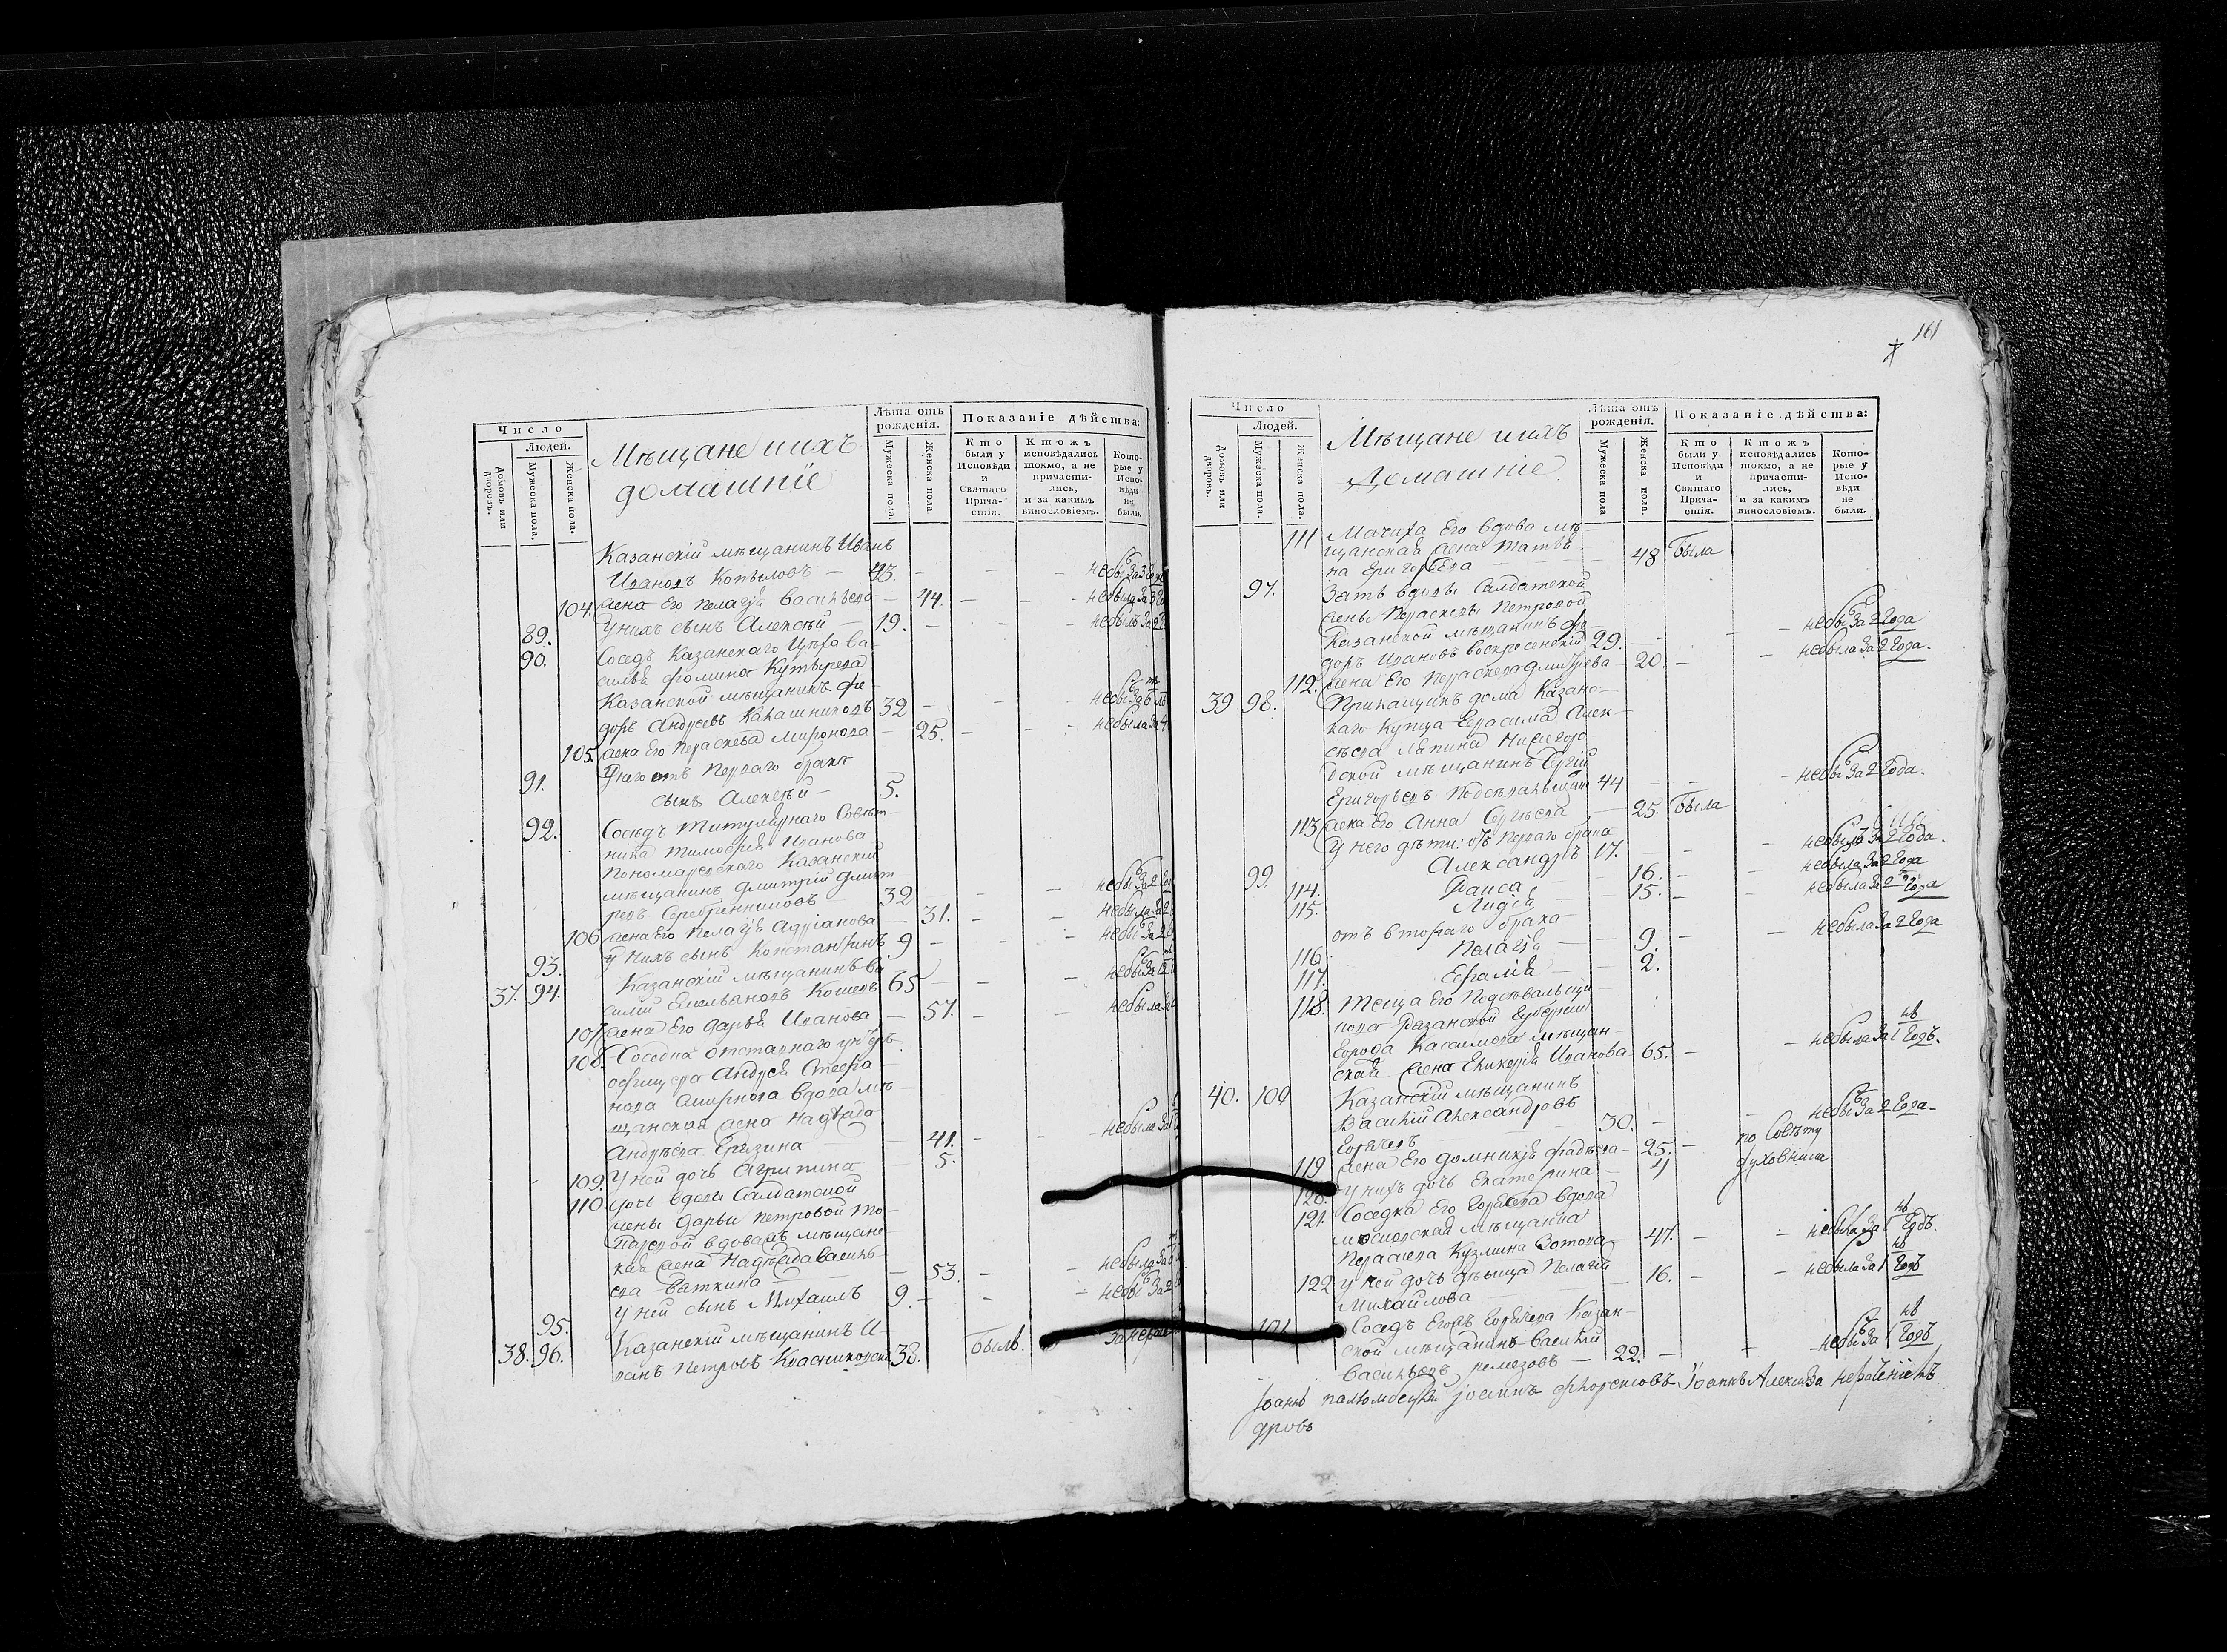 Число
Людей.
Домовъ или дворовъ.
Мужеска пола.
Женска пола.
Мѣщане и ихъ
домашнїе
Лѣта отъ рожденія.
Мужеска пола.
Женска пола
Показаніе дѣйства:
Кто были у Исповѣди и Святаго Прича-стія.
Ктожъ исповѣдались токмо, а не причасти-лись, и за какимъ винословіемъ.
Кото-рые у Испо-вѣди не были.
Казанскій мѣщанинъ Иванъ
Ивановъ Копыловъ — 43. — — — небы за 3
104. жена Его Пелагія Васильева — 44. — — небыла за 3
89. У нихъ сынъ Алексѣй — 19. — — — небылъ за 2
90. Соседъ Казанскаго Цѣха Ва-
силья Фомина Кутырева
Казанской мѣщанинъ Фе-
доръ Андреевъ Калашниковъ 32 — — — небы за
105. жена Его Параскева Миронова — 25. — — небыла за
91. У него отъ перваго брака
сынъ Алексѣй — 5.
92. Соседъ Титулярнаго Совѣт-
ника Тимофея Иванова
Пономаревскаго Казанскій
мѣщанинъ Дмитрій Дмит
ревъ Серебренниковъ 32 — — небы за 2
106 жена Его Пелагія Адріанова — 31. — — небыла за 2
93. у нихъ сынъ Константинъ 9 — — — небы за 2
37. 94. Казанскій мѣщанинъ Ва
силій Емельяновъ Кошевъ 65 — — — небы за
107. жена Его Дарья Иванова — 57. — — небыла за
108. Соседка отставнаго унтеръ
офицера Андрея Стефа-
нова Смирнова вдова мѣ-
щанская жена Надежда
Андреева Ерзина — 41. — — небыла за
109. У ней дочь Агрипина 5.
110. дочь вдовы Салдатской
жены Дарьи Петровой То-
парской вдова мѣщанс
кая жена Надежда Василь-
ева Вяткина — 53. — — небыла за
95. У ней сынъ Михаилъ 9. — — — небы за 2
38. 96. Казанскій мѣщанинъ И-
ванъ Петровъ Красниковъ 38. былъ.
161
Число
Людей.
Домовъ или дворовъ.
Мужеска пола.
Женска пола.
Мѣщане и ихъ
Домашніе
Лѣта отъ рожденія.
Мужеска пола
Женска пола.
Показаніе дѣйства:
Кто были у Исповѣди и Святаго Прича-стія.
Ктожъ исповѣдались токмо, а не причасти-лись, и за какимъ винословіемъ.
Кото-рые у Испо-вѣди не были.
111 Мачиха Его вдова мѣ
щанская жена Татья
на Григорьева — 48 была
97. Зять вдовы Салдатской
жены Параскевы Петровой
Казанской мѣщанинъ Фе-
доръ Ивановъ Воскресенскій 29. — — — небы за 2 Года
112. жена Его Параскева Дмитріева — 20. — — небыла за 2 Года.
39 98. Прикащикъ дома Казанс-
каго Купца Герасима Алек-
сѣева Ляпина Нижегоро-
дской мѣщанинъ Сергій
Григорьевъ 44 — — — небы за 2 Года.
113 жена Его Анна Сергѣева — 25. была
У него дѣти: отъ перваго брака
99. Александръ 17. — — — небылъ за 2 Года.
114. Раиса — 16. — — небыла за 2 Года
115. Лидія — 15. — — небыла за 2 Года
отъ втораго брака
116. Пелагія — 9. — — небыла за 2 Года
117. Ефалія — 2.
118. Теща Его Подсѣвальщи-
кова Рязанской Губерніи
Города Касимова мѣщан-
ская жена Гликерія Иванова 65. — — небыла за 1 Годъ.
40. 100 Казанскій мѣщанинъ
Василій Александровъ
Горячевъ 30. — — — небы за 2 Года
119 жена Его Домникія Фадѣева — 25. — по Совѣту
120. у нихъ дочь Екатерина — 4 духовника
121. Соседка Его Горячева вдова
московская мѣщанка
Параскева Кузмина Зотова — 47. — — небыла за 1 Годъ.
122 у ней дочь дѣвица Пелагія
Михайлова — 16. — — небыла за 1 Годъ
101 Соседъ Его Горячева Казан-
ской мѣщанинъ Василій
Васильевъ Ремезовъ — 22. — — — небы за 1 Годъ